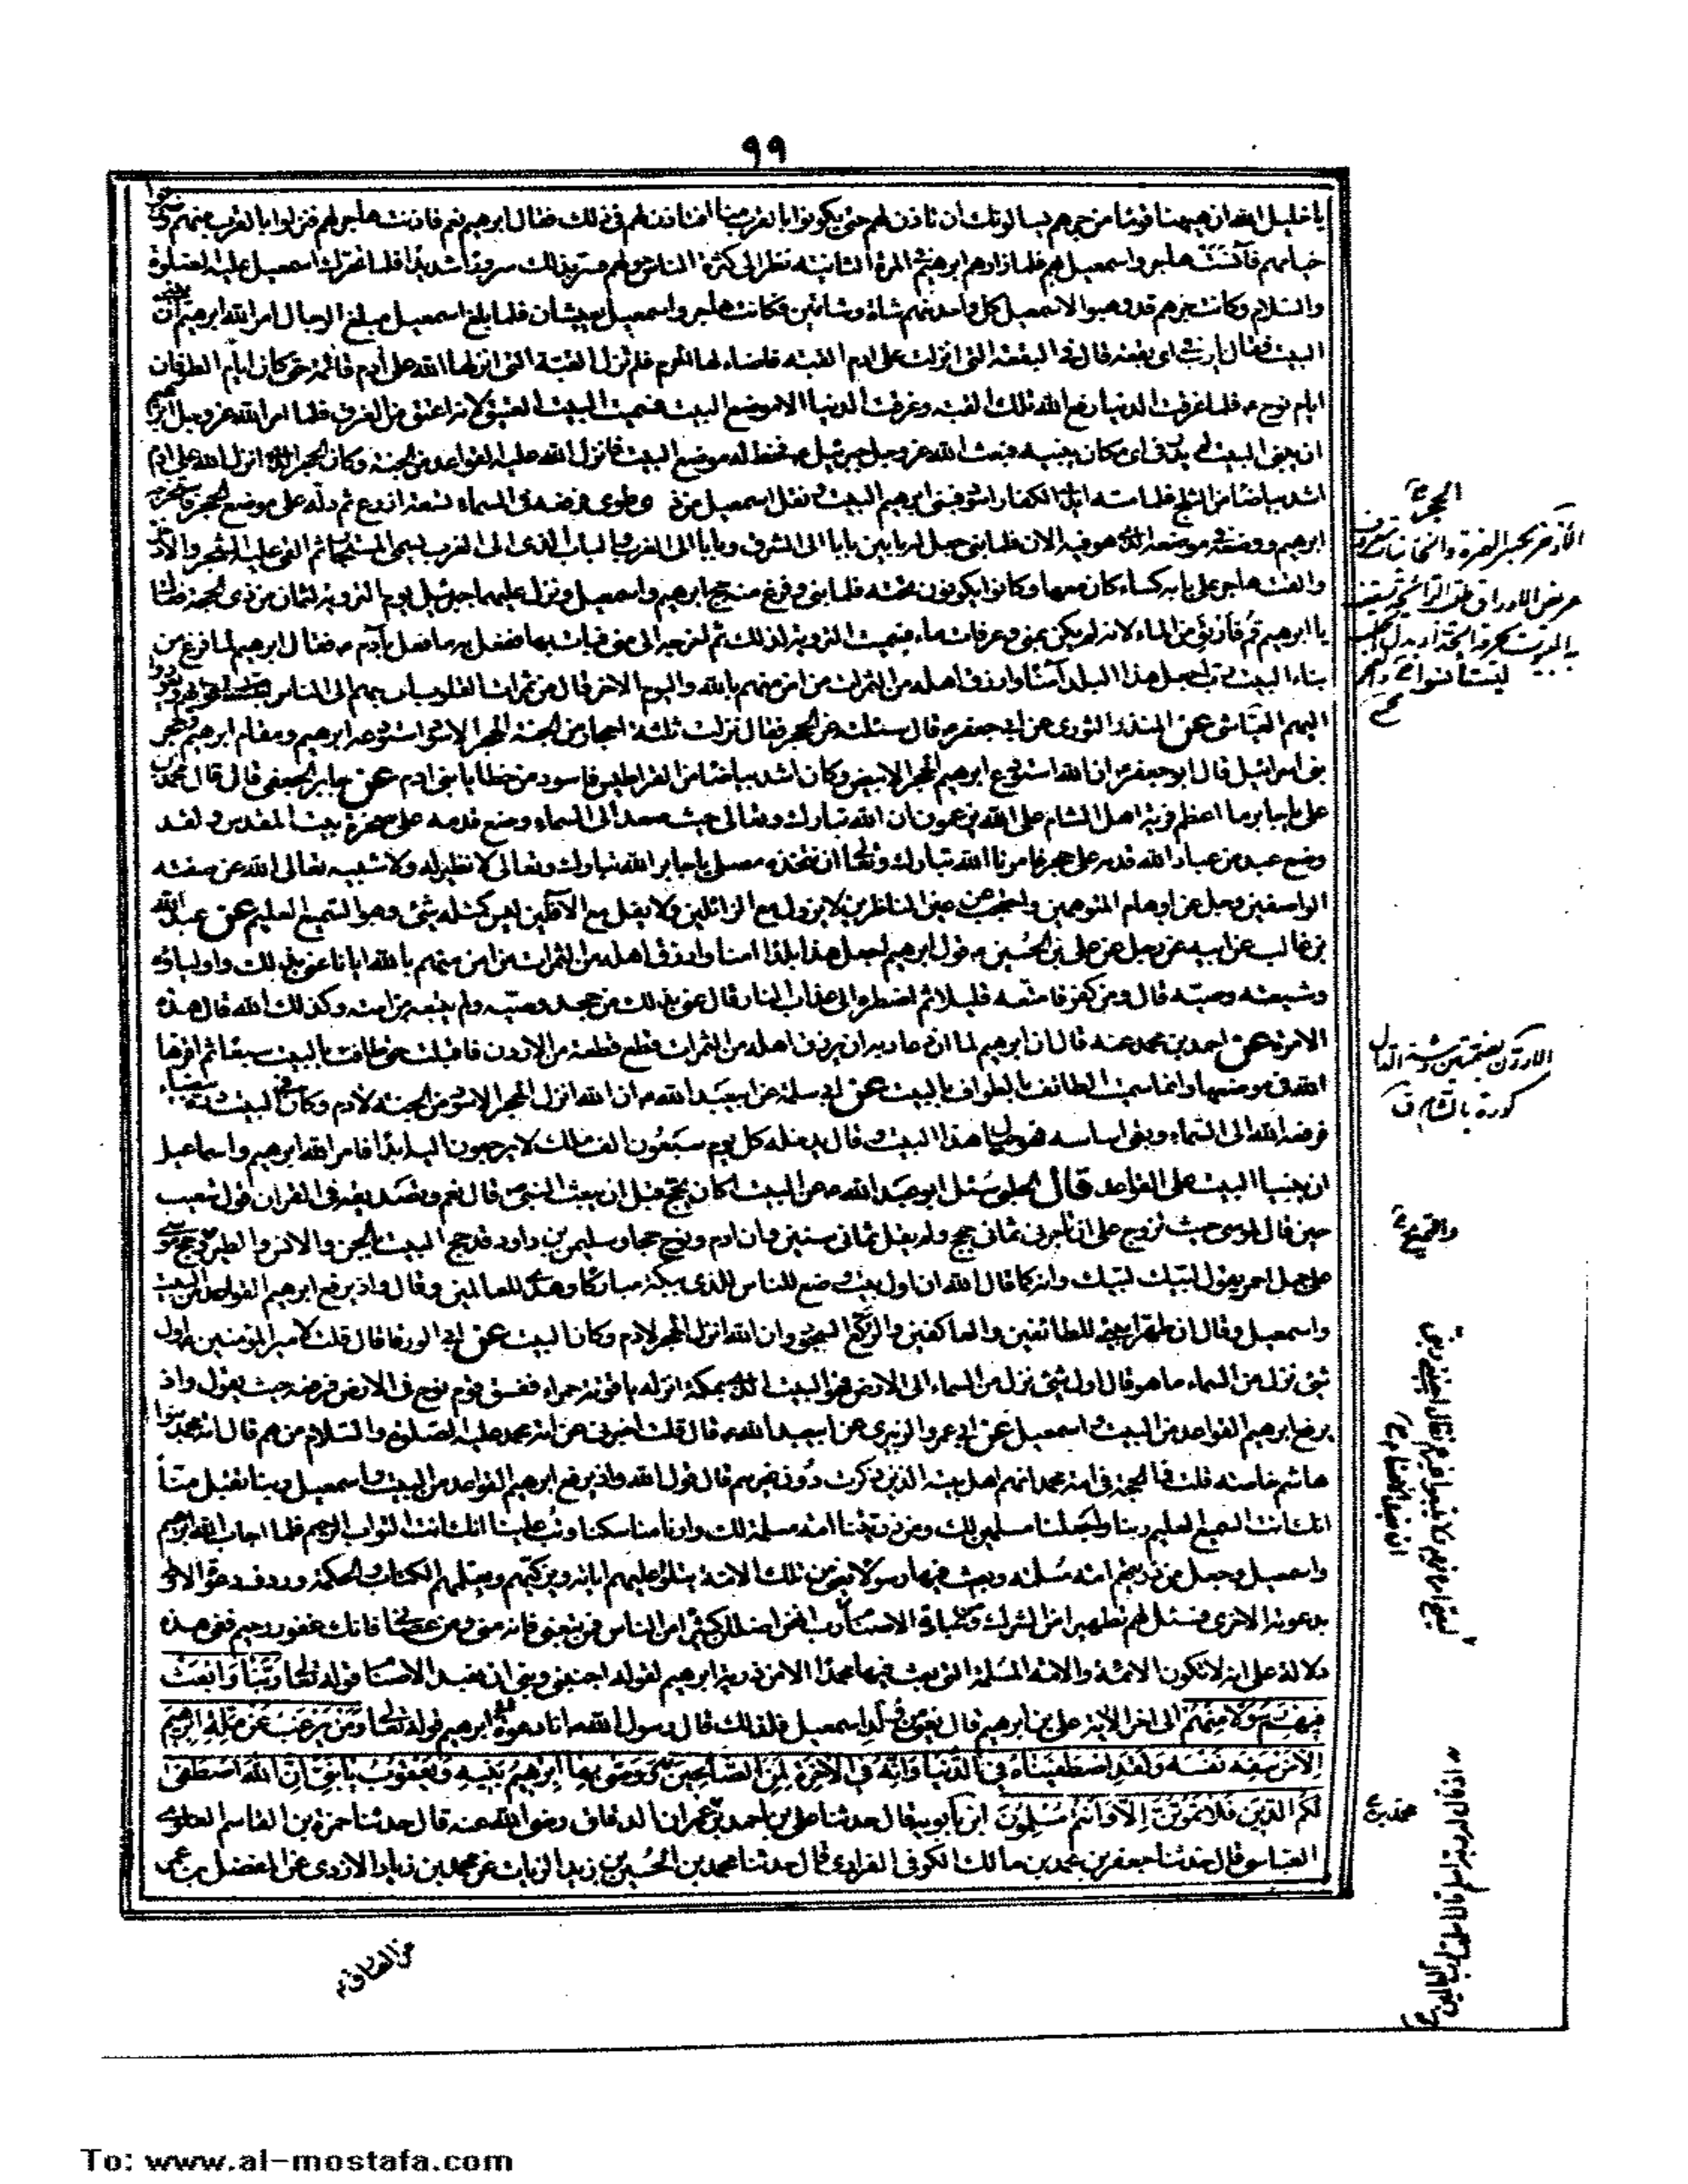 ٩٩
يا خليل الله ان هيهنا قوما من جرهم يسالونك ان تاذن لهم حتى يكونوا بالقرب منا افتاذن لهم فى ذلك فقال ابرهيم نعم فاذنت هاجر لهم فنزلوا بالقرب منهم وضربوا
خيامهم فآنست هاجر واسمعيل بهم فلما زارهم ابرهيم المرة الثانية نظر الى كثرة الناس حولهم فسر بذلك سرورا شديدا فلما تحرك اسمعيل عليه الصلوة
والسلام وكانت جرهم قد وهبوا لاسمعيل كل واحد منهم شاة وشاتين فكانت هاجر واسمعيل يعيشان فلما بلغ اسمعيل مبلغ الرجال امر الله ابرهيم ان يبنى
البيت فقال يا رب فى اى بقعة قال فى البقعة التى انزلت على ادم القبة فاضاء لها الحرم فلم تزل القبة التى انزلها الله على ادم قائمة حتى كان ايام الطوفان
ايام نوح ع فلما غرقت الدنيا رفع الله تلك القبة وغرقت الدنيا الا موضع البيت فسميت البيت العتيق لانه اعتق من الغرق فلما امر الله عز وجل ابرهيم
ان يبنى البيت لم يدر فى اى مكان يبنيه فبعث الله عز وجل جبرئيل ع فخط له موضع البيت فانزل الله عليه القواعد من الجنة وكان الحجر الذى انزل الله على ادم
اشد بياضا من الثلج فلما مسته ايدى الكفار اسود فبنى ابرهيم البيت ونقل اسمعيل من ذى طوى فرفعه فى السماء تسعة اذرع ثم دله على موضع الحجر فاستخرجه
ابرهيم ووضعه فى موضعه الذى هو فيه الان فلما بنى جعل له بابين بابا الى المشرق وبابا الى المغرب والباب الذى الى المغرب يسمى المستجار ثم القى عليه الشجر والاذخر
والقت هاجر على بابه كساء كان معها وكانوا يكونون تحته فلما بنى وفرغ منه حج ابرهيم واسمعيل ونزل عليهما جبرئيل يوم التروية لثمان من ذى الحجة فقال
يا ابرهيم قم فارتو من الماء لانه لم يكن بمنى وعرفات ماء فسميت التروية لذلك ثم اخرجه الى منى فبات بها ففعل به ما فعل بآدم ع فقال ابرهيم لما فرغ من
بناء البيت رب اجعل هذا البلد آمنا وارزق اهله من الثمرات من امن منهم بالله واليوم الاخر قال من ثمرات القلوب اى حببهم الى الناس
اليهم العياشى عن المنذر الثورى عن ابى جعفر ع قال سئلته عن الحجر فقال نزلت ثلثة احجار من الجنة الحجر الاسود استودعه ابرهيم ومقام ابرهيم وحجر
بنى اسرائيل قال ابو جعفر ع ان الله استودع ابرهيم الحجر الابيض وكان اشد بياضا من القراطيس فاسود من خطايا بنى ادم عن جابر الجعفى قال قال محمد بن
على يا جابر ما اعظم فرية اهل الشام على الله يزعمون ان الله تبارك وتعالى حيث صعد الى السماء وضع قدمه على صخرة بيت المقدس ولقد
وضع عبد من عباد الله قدمه على حجر فامرنا الله تبارك وتعالى ان نتخذه مصلى يا جابر ان الله تبارك وتعالى لا نظير له ولا شبيه تعالى الله عن صفة
الواصفين وجل عن اوهام المتوهمين واحتجب عن عين الناظرين لا يزول مع الزائلين ولا يفل مع الآفلين ليس كمثله شئ وهو السميع العليم عن عبد الله
بن غالب عن ابيه عن رجل عن على بن الحسين ع قول ابرهيم رب اجعل هذا بلدا امنا وارزق اهله من الثمرات من امن منهم بالله ايانا عنى بذلك واولياءه
وشيعة وصيه قال ومن كفر فامتعه قليلا ثم اضطره الى عذاب النار قال عنى بذلك من جحد وصيه ولم يتبعه من امته وكذلك والله قال هذه
الامة عن احمد بن محمد عنه قال ان ابرهيم لما ان دعا ربه ان يرزق اهله من الثمرات قطع قطعة من الاردن فاقبلت حتى طافت بالبيت سبعا ثم اقرها
الله فى موضعها وانما سميت الطائف بالطواف بالبيت عن ابى سلمة عن ابى عبد الله ع ان الله انزل الحجر الاسود من الجنة لادم وكان البيت درة بيضاء
فرفعه الله الى السماء وبقى اساسه فهو حيال هذا البيت وقال يدخله كل يوم سبعون الف ملك لا يرجعون اليه ابدا فامر الله ابرهيم واسماعيل
ان يبنيا البيت على القواعد قال الحلبى سئل ابو عبد الله ع عن البيت اكان يحج قبل ان يبعث النبى ص قال نعم وتصديقه فى القران قول شعيب
حين قال لموسى حيث تزوج على ان تاجرنى ثمانى حجج ولم يقل ثمانى سنين وان ادم ونوح حجا وسليمن بن داود قد حج البيت بالجن والانس والطير وحج موسى
على جمل احمر يقول لبيك لبيك وانه كما قال الله ان اول بيت وضع للناس للذى ببكة مباركا وهدى للعالمين وقال واذ يرفع ابرهيم القواعد من البيت
واسمعيل وقال ان طهرا بيتى للطائفين والعاكفين والركع السجود وان الله انزل الحجر لادم وكان البيت عن ابى الورقا قال قلت لامير المؤمنين ع اول
شئ نزل من السماء ما هو قال اول شئ نزل من السماء الى الارض فهو البيت الذى بمكة انزله ياقوتة حمراء ففسق قوم نوح فى الارض فرفعه حيث يقول واذ
يرفع ابرهيم القواعد من البيت واسمعيل عن ابى عمرو الزبيرى عن ابى عبد الله ع قال قلت اخبرنى عن امة محمد عليه الصلوة والسلام من هم قال امة محمد بنو
هاشم خاصة قلت فما الحجة فى امة محمد انهم اهل بيته الذين ذكرت دون غيرهم قال قول الله واذ يرفع ابرهيم القواعد من البيت واسمعيل ربنا تقبل منا
انك انت السميع العليم ربنا واجعلنا مسلمين لك ومن ذريتنا امة مسلمة لك وارنا مناسكنا وتب علينا انك انت التواب الرحيم فلما اجاب الله ابرهيم
واسمعيل وجعل من ذريتهم امة مسلمة وبعث فيها رسولا يعنى من تلك الامة يتلو عليهم اياته ويزكيهم ويعلمهم الكتاب والحكمة وردف دعوته الاولى
بدعوته الاخرى فسئل لهم تطهيرا من الشرك ومن عبادة الاصنام رب انهن اضللن كثيرا من الناس فمن تبعنى فانه منى ومن عصانى فانك غفور رحيم ففى هذه
دلالة على انه لا تكون الائمة والامة المسلمة التى بعث فيها محمدا الا من ذرية ابرهيم لقوله اجنبنى وبنى ان نعبد الاصنام قوله تعالى رَبَّنَا وَابْعَثْ
فِيهِمْ رَسُولًا مِنْهُمْ الى اخر الاية على بن ابرهيم قال يعنى من ولد اسمعيل فلذلك قال رسول الله ص انا دعوة ابى ابرهيم قوله تعالى وَمَنْ يَرْغَبُ عَنْ مِلَّةِ اِبْرهِيمَ
اِلَّا مَنْ سَفِهَ نَفْسَهُ وَلَقَدِ اصْطَفَيْنَاهُ فِى الدُّنْيَا وَاِنَّهُ فِى الْاخِرَةِ لَمِنَ الصَّالِحِينَ وَوَصَّى بِهَا اِبْرهِيمُ بَنِيهِ وَيَعْقُوبُ يَا بَنِىَّ اِنَّ اللهَ اصْطَفَى
لَكُمُ الدِّينَ فَلَا تَمُوتُنَّ اِلَّا وَاَنْتُمْ مُسْلِمُونَ ابن بابويه قال حدثنا على بن احمد بن عمران الدقاق رضى الله عنه قال حدثنا حمزة بن القاسم العلوى
العباسى قال حدثنا جعفر بن محمد بن مالك الكوفى الفزارى قال حدثنا محمد بن الحسين بن زيد الزيات عن محمد بن زياد الازدى عن المفضل بن عمر
الحجر
الاردن بضمتين وشد
كورة بالشام ق
محمد
عن الصادق ع
To: www.al-mostafa.com